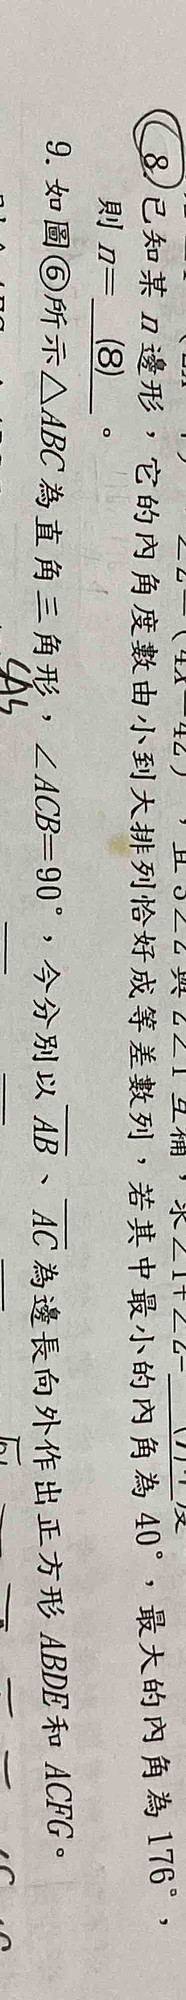 8. 已知某 n 邊形，它的內角度數由小到大排列恰好成等差數列，若其中最小的內角為 40°，最大的內角為 176°，
則 n= (8) 。
9. 如圖⑥所示△ABC 為直角三角形，∠ACB=90°，今分別以 AB、AC 為邊長向外作出正方形 ABDE 和 ACFG。